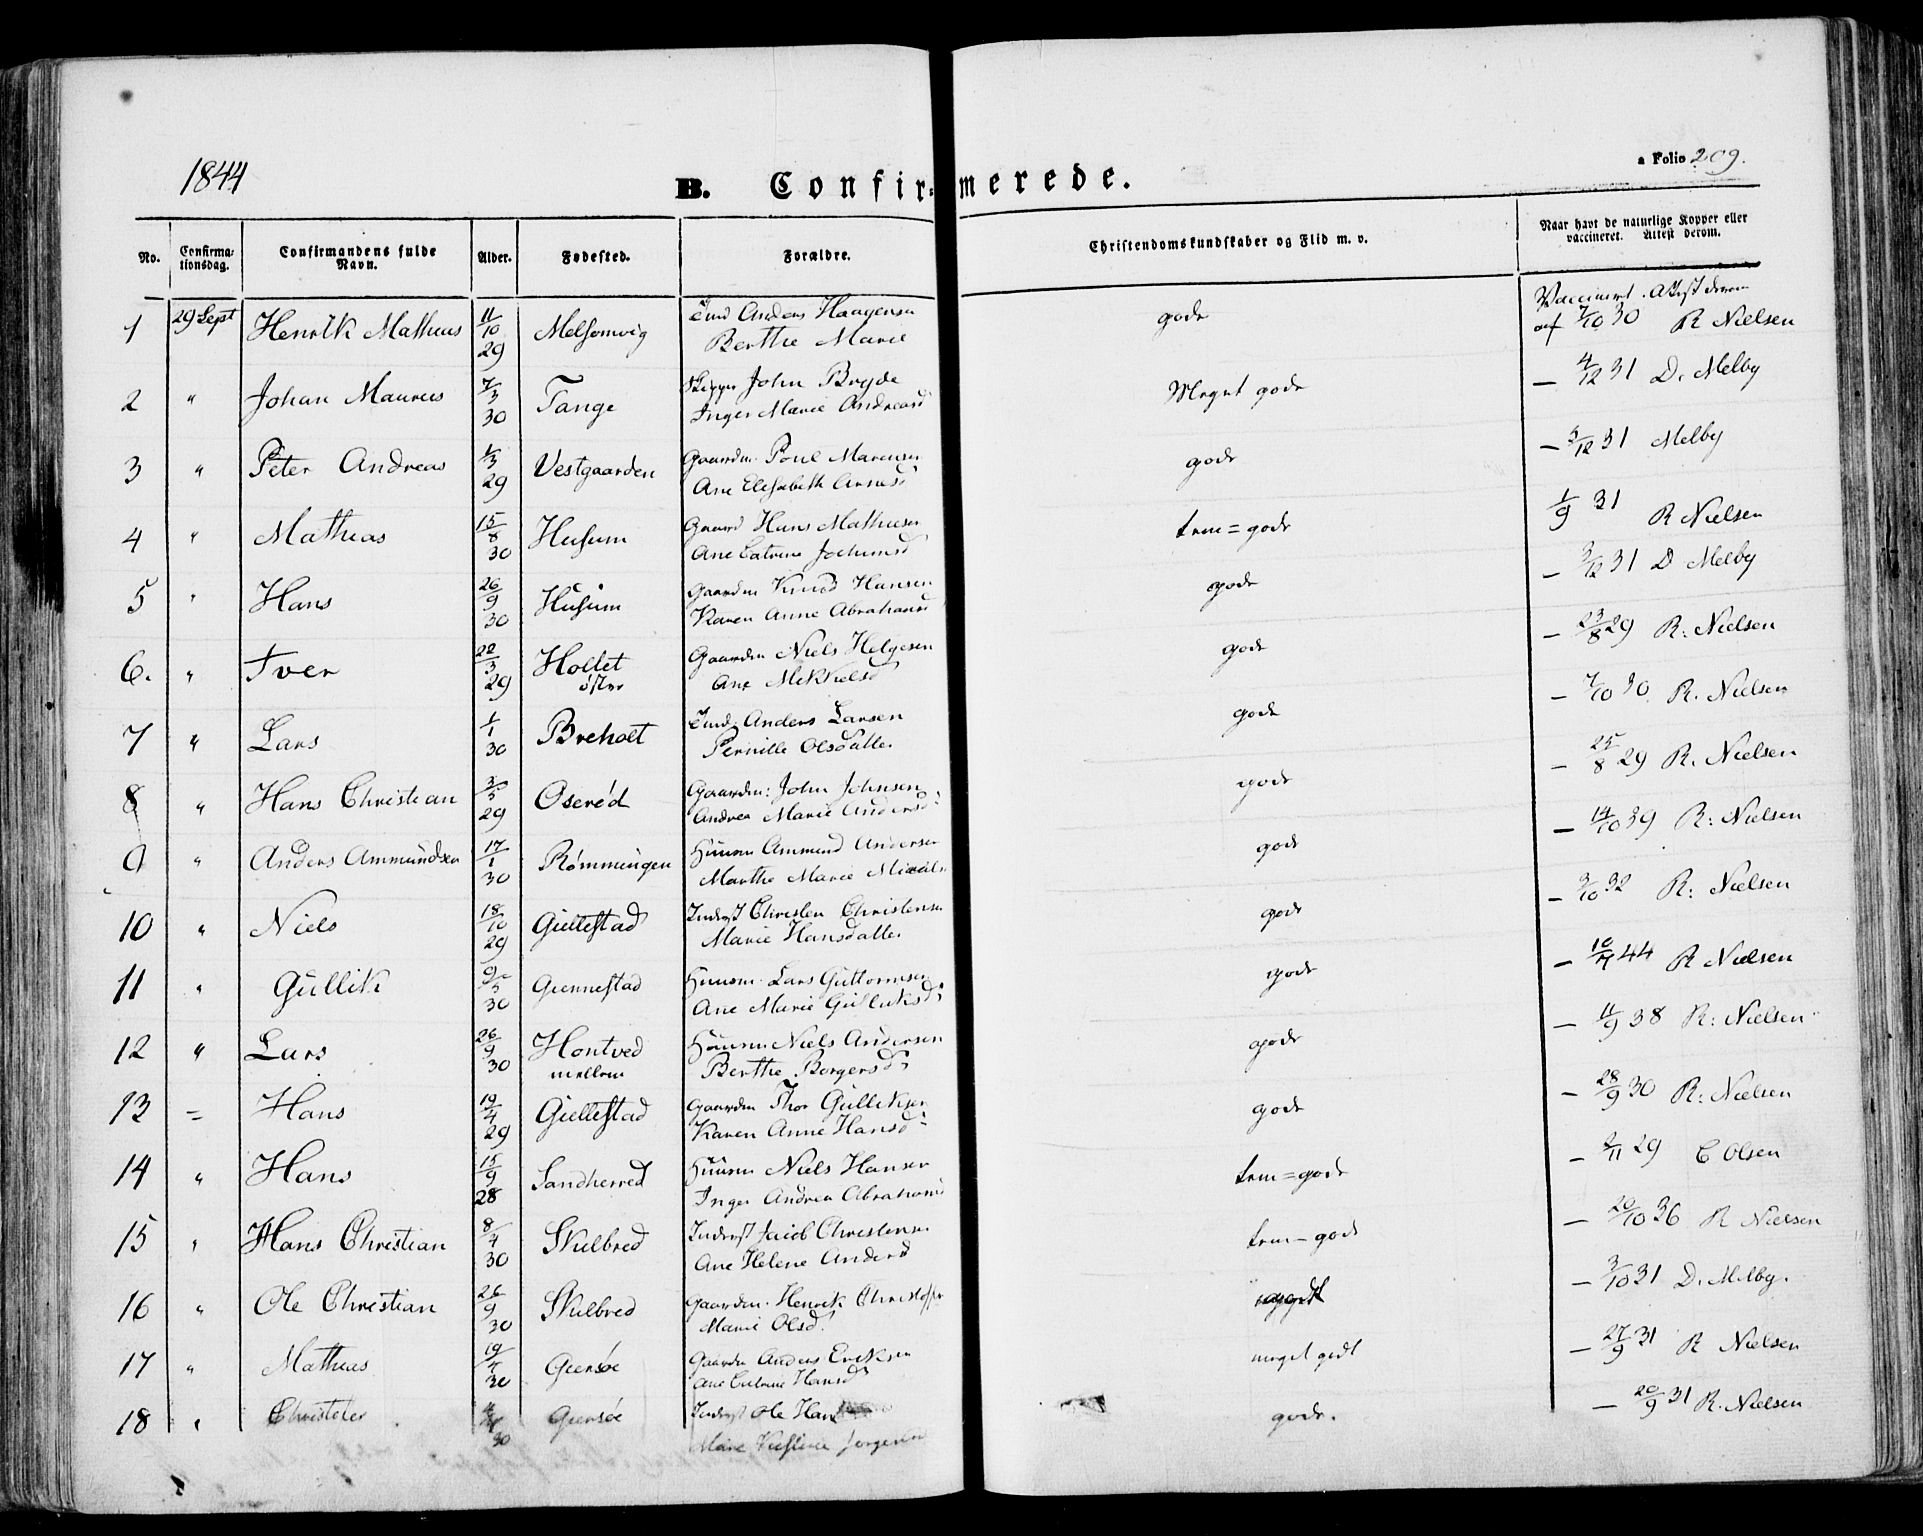 1844
a Folio 209.
B. Confirmerede.
No. Confirmationsdag. Confirmandens fulde Navn. Alder. Fødested. Forældre. Christendomskundskaber og Flid m. v. Naar havt de naturlige Kopper eller vaccineret. Attest derom.
1 29 Sept Henrik Mathias 11/10 29 Melsomvig Anders Haagensen gode Vaccineret. Attest derom
Berthe Marie af 7/10 30 R Nielsen
2 " Johan Maurits 7/3 30 Tange Skipper John Bryde Meget gode — 4/12 31 D. Melby
Inger Marie Andreasd
3 " Peter Andreas 1/3 29 Vestgaarden Gaardm. Poul Marensen gode — 3/12 31 Melby
Ane Elisabeth Arnesd
4 " Mathias 15/8 30 Husum Gaard Hans Mathisen tem=gode 1/9 31 R Nielsen
Ane Catrine Jochumsd
5 " Hans 26/9 30 Husum Gaardm Knud Hansen gode — 3/12 31 D Melby
Karen Anne Abrahamsd
6. " Iver 22/3 29 Hollet Gaardm Niels Helgesen gode — 23/8 29 R: Nielsen
øster Ane Mikkelsd
7 " Lars 1/1 30 Breholt Anders Larsen gode — 7/10 30 R. Nielsen
Pernille Olsdatter
8 " Hans Christian 3/5 29 Oserød Gaardm: John Johnsen gode — 25/8 29 R. Nielsen
Andrea Marie Andersd
9 " Anders Ammundsen 17/1 30 Rømmingen Huusm Ammund Andersen gode — 14/10 39 R: Nielsen
Marthe Marie
10 " Niels 18/10 29 Gjellestad Inderst Christen Christensen gode — 3/10 32 R: Nielsen
Marie Hansdatter
11 " Gullik 9/5 30 Gjennestad Huusm. Lars Guttormsen gode — 10/7 44 R Nielsen
Ane Marie Gulliksd
12 " Lars 26/9 30 Hontved Huusm Niels Andersen gode — 11/9 38 R: Nielsen
mellem Berthe Borgersd
13 = Hans 19/4 29 Gjellestad Gaardm Thor Gulliksen gode — 28/9 30 R: Nielsen
Karen Anne Hansd
14 " Hans 15/9 28 Sandherred Huusm Niels Hansen tem=gode — 2/11 29 C Olsen
Inger Andrea Abrahamsd
15 " Hans Christian 8/4 30 Skelbred Inderst Jacob Christensen tem=gode — 20/10 36 R Nielsen
Ane Helene Andersd
16 " Ole Christian 26/9 30 Skelbred Gaardm. Henrik — 3/10 31 D. Melby.
Marie Olsd.
17 " Mathias 30 Giersøe Gaardm Anders Eriksen meget godt — 27/9 31 R Nielsen
Ane Catrine Hansd
18 " 30 Giersøe Inderst Ole Hans gode. — 20/9 31 R. Nielsen